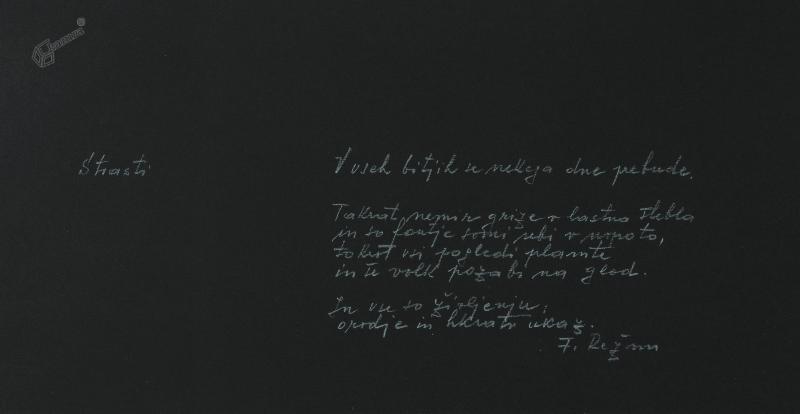 Strasti
V vseh bitjih se nekega dne prebude.
Takrat nemir grize v lastna stebla
in so fantje sami sebi v napoto,
takrat vsi pogledi plamte
in te volk pozabi na glad.
In vse so življenju:
orodje in hkrati ukaz.
F.